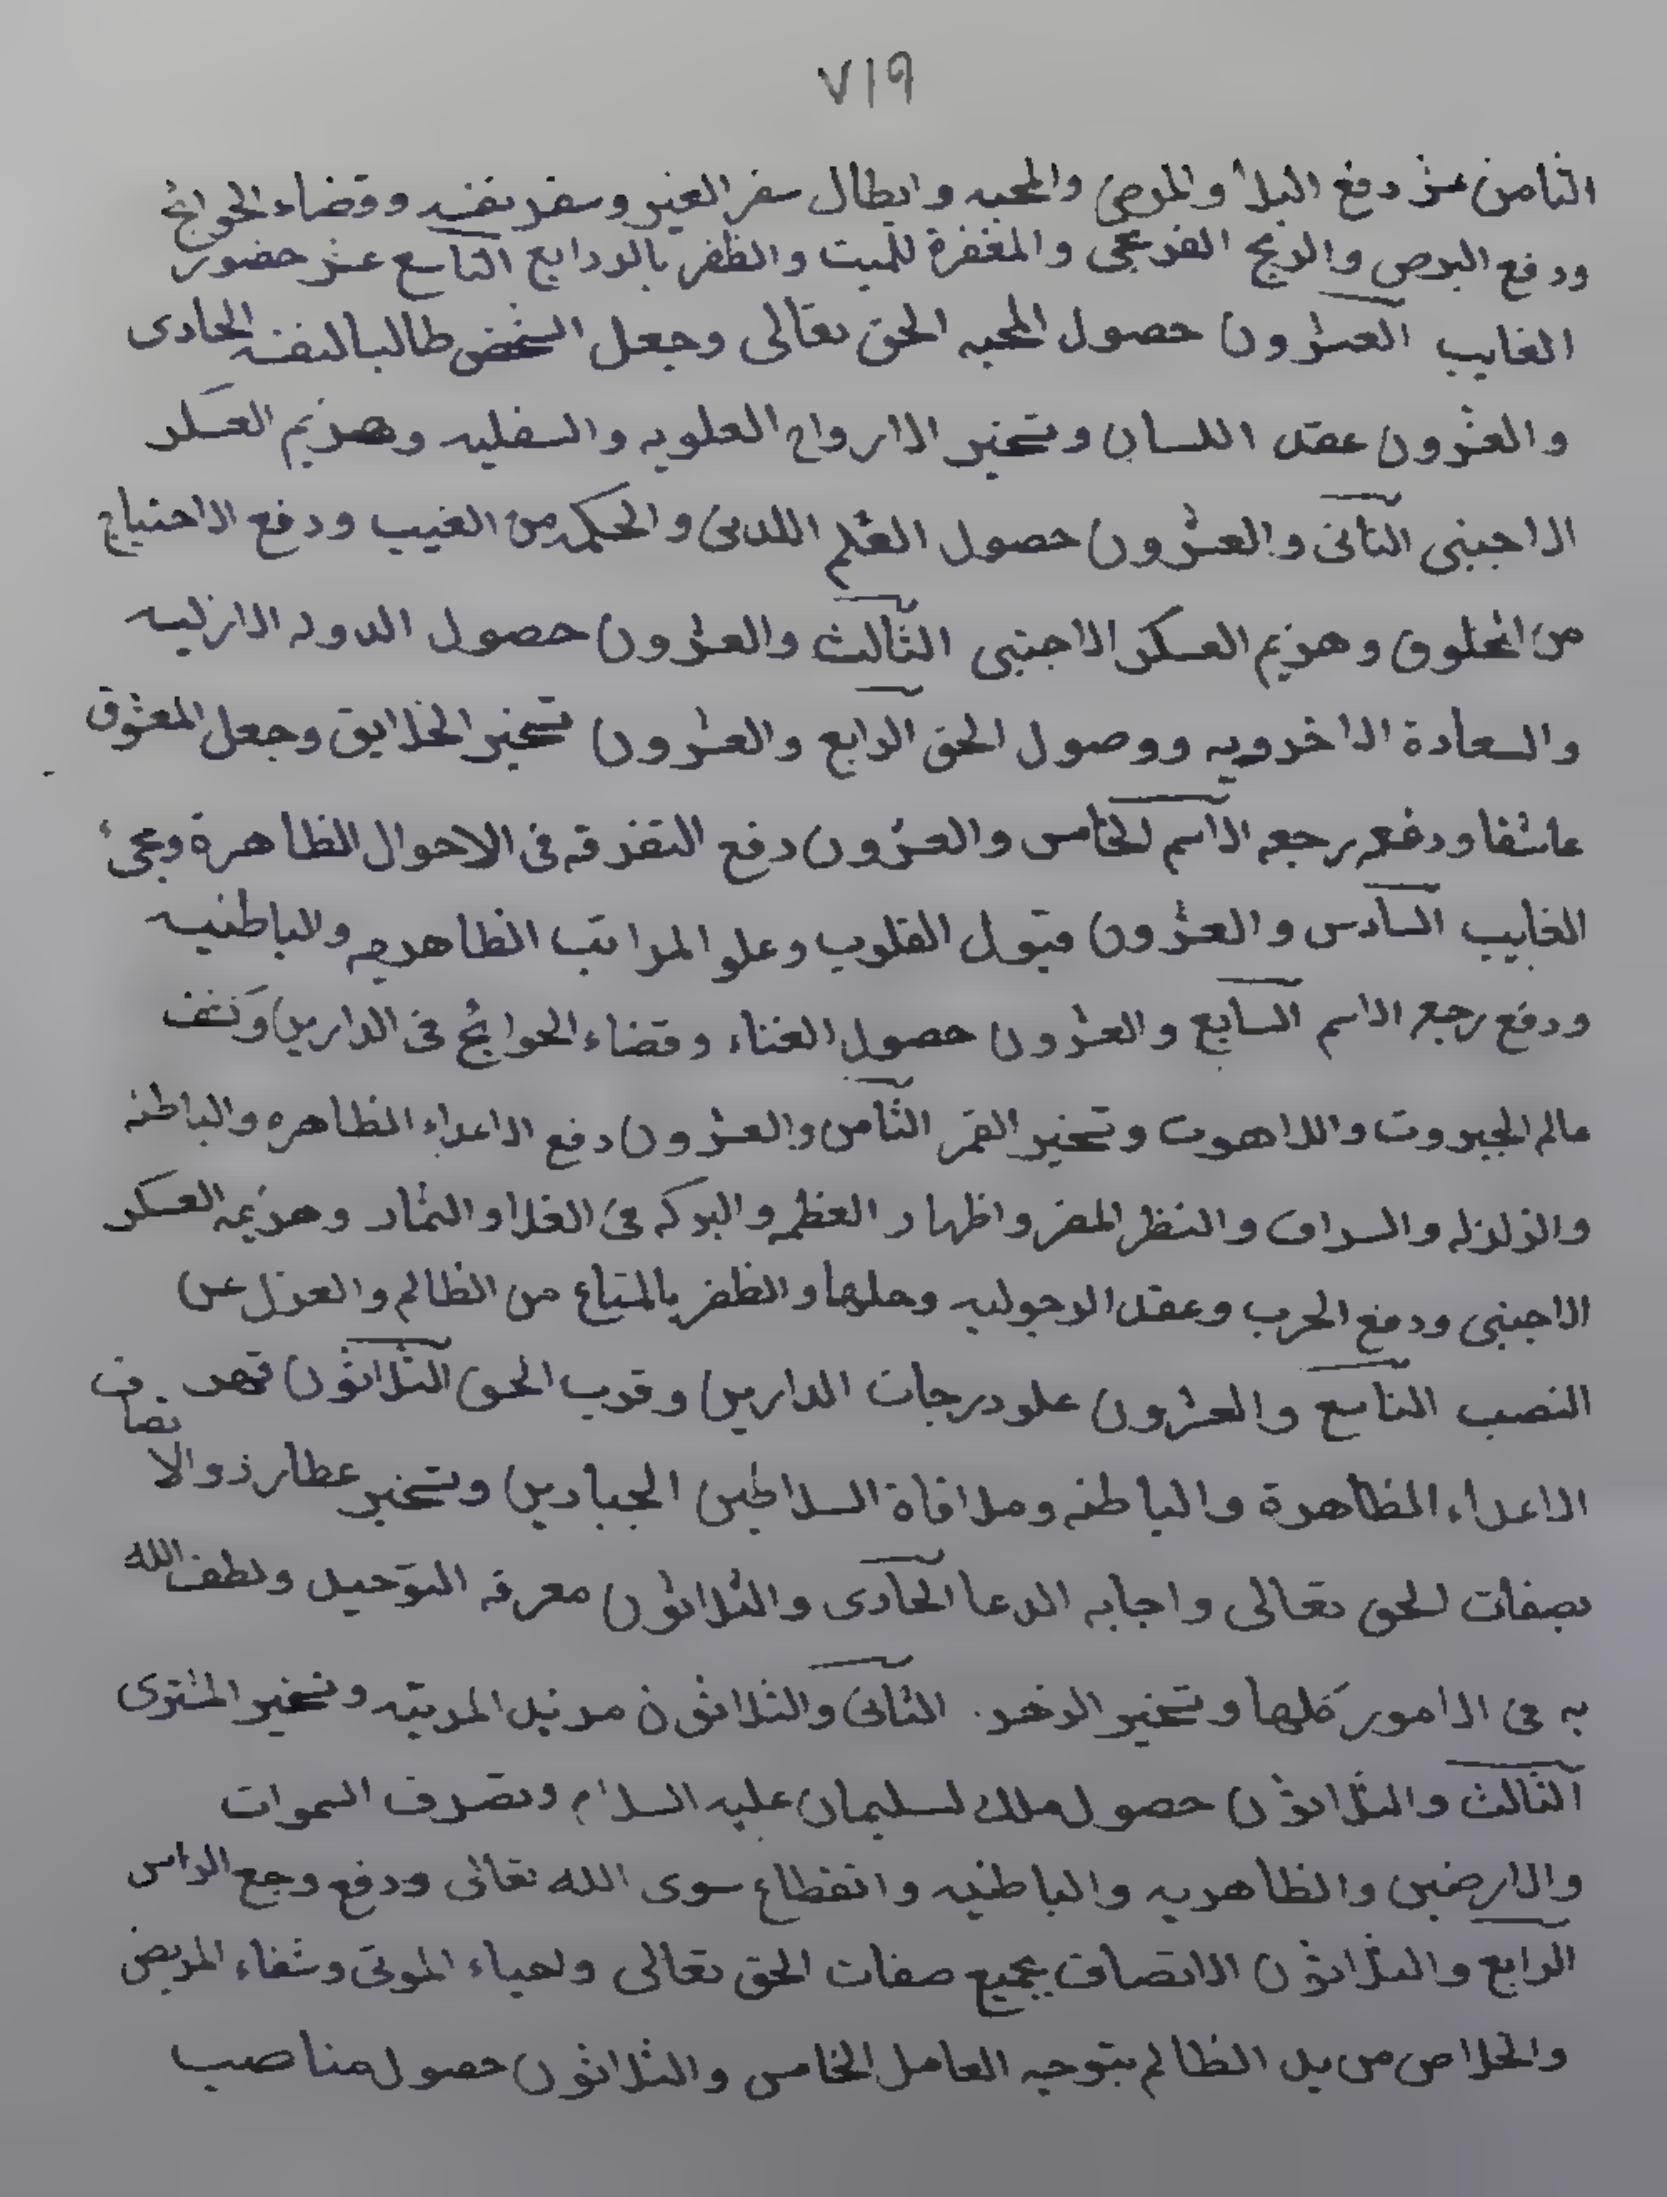 ٧١٩
الثامن عشر دفع البلا والمرض والمحبه وابطال سفر الغير وسفر نفسه وقضاء الحوائج
ودفع البرص والريح الفرنجى والمغفرة للميت والظفر بالودايع التاسع عشر حضور
الغايب العشرون حصول المحبه الحق تعالى وجعل الشخص طالبا لنفسه الحادى
والعشرون عقد اللسان وتسخير الارواح العلويه والسفليه وهزيم العسكر
الاجنبى الثانى والعشرون حصول العلم اللدنى والحكمه من الغيب ودفع الاحتياج
من المخلوق وهزيم العسكر الاجنبى الثالث والعشرون حصول الدوله الازليه
والسعادة الاخرويه ووصول الحق الرابع والعشرون تسخير الخلايق وجعل المعشوق
عاشقا ودفع رجعه الاسم الخامس والعشرون دفع التفرقه فى الاحوال الظاهرة ومجىء
الغايب السادس والعشرون قبول القلوب وعلو المراتب الظاهريه والباطنيه
ودفع رجع الاسم السابع والعشرون حصول الغناء وقضاء الحوائج فى الدارين وكشف
عالم الجبروت واللاهوت وتسخير القمر الثامن والعشرون دفع الاعداء الظاهره والباطنه
والزلزله والسراق والنظر المضر واظهار العظمه والبركه فى الغلا والثمار وهزيمه العسكر
الاجنبى ودفع الحرب وعقد الرجوليه وحلها والظفر بالمتاع من الظالم والعزل عن
النصب التاسع والعشرون علو درجات الدارين وقرب الحق الثلاثون قهر
الاعداء الظاهرة والباطنه وملاقاة السلاطين الجبارين وتسخير عطارد والاتصاف
بصفات الحق تعالى واجابه الدعا الحادى والثلاثون معرفه التوحيد ولطف الله
به فى الامور كلها وتسخير الزهر. الثانى والثلاثون مزيد المرتبه وتسخير المشترى
الثالث والثلاثون حصول ملك لسليمان عليه السلام وتصرف السموات
والارضين والظاهريه والباطنيه وانقطاع سوى الله تعالى ودفع وجع الراس
الرابع والثلاثون الاتصاف بجميع صفات الحق تعالى واحياء الموتى وشفاء المريض
والخلاص من يد الظالم بتوجيه العامل الخامس والثلاثون حصول مناصب